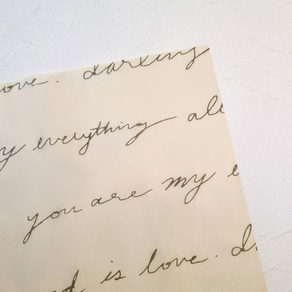 love. darling
everything all
you are my
is love.